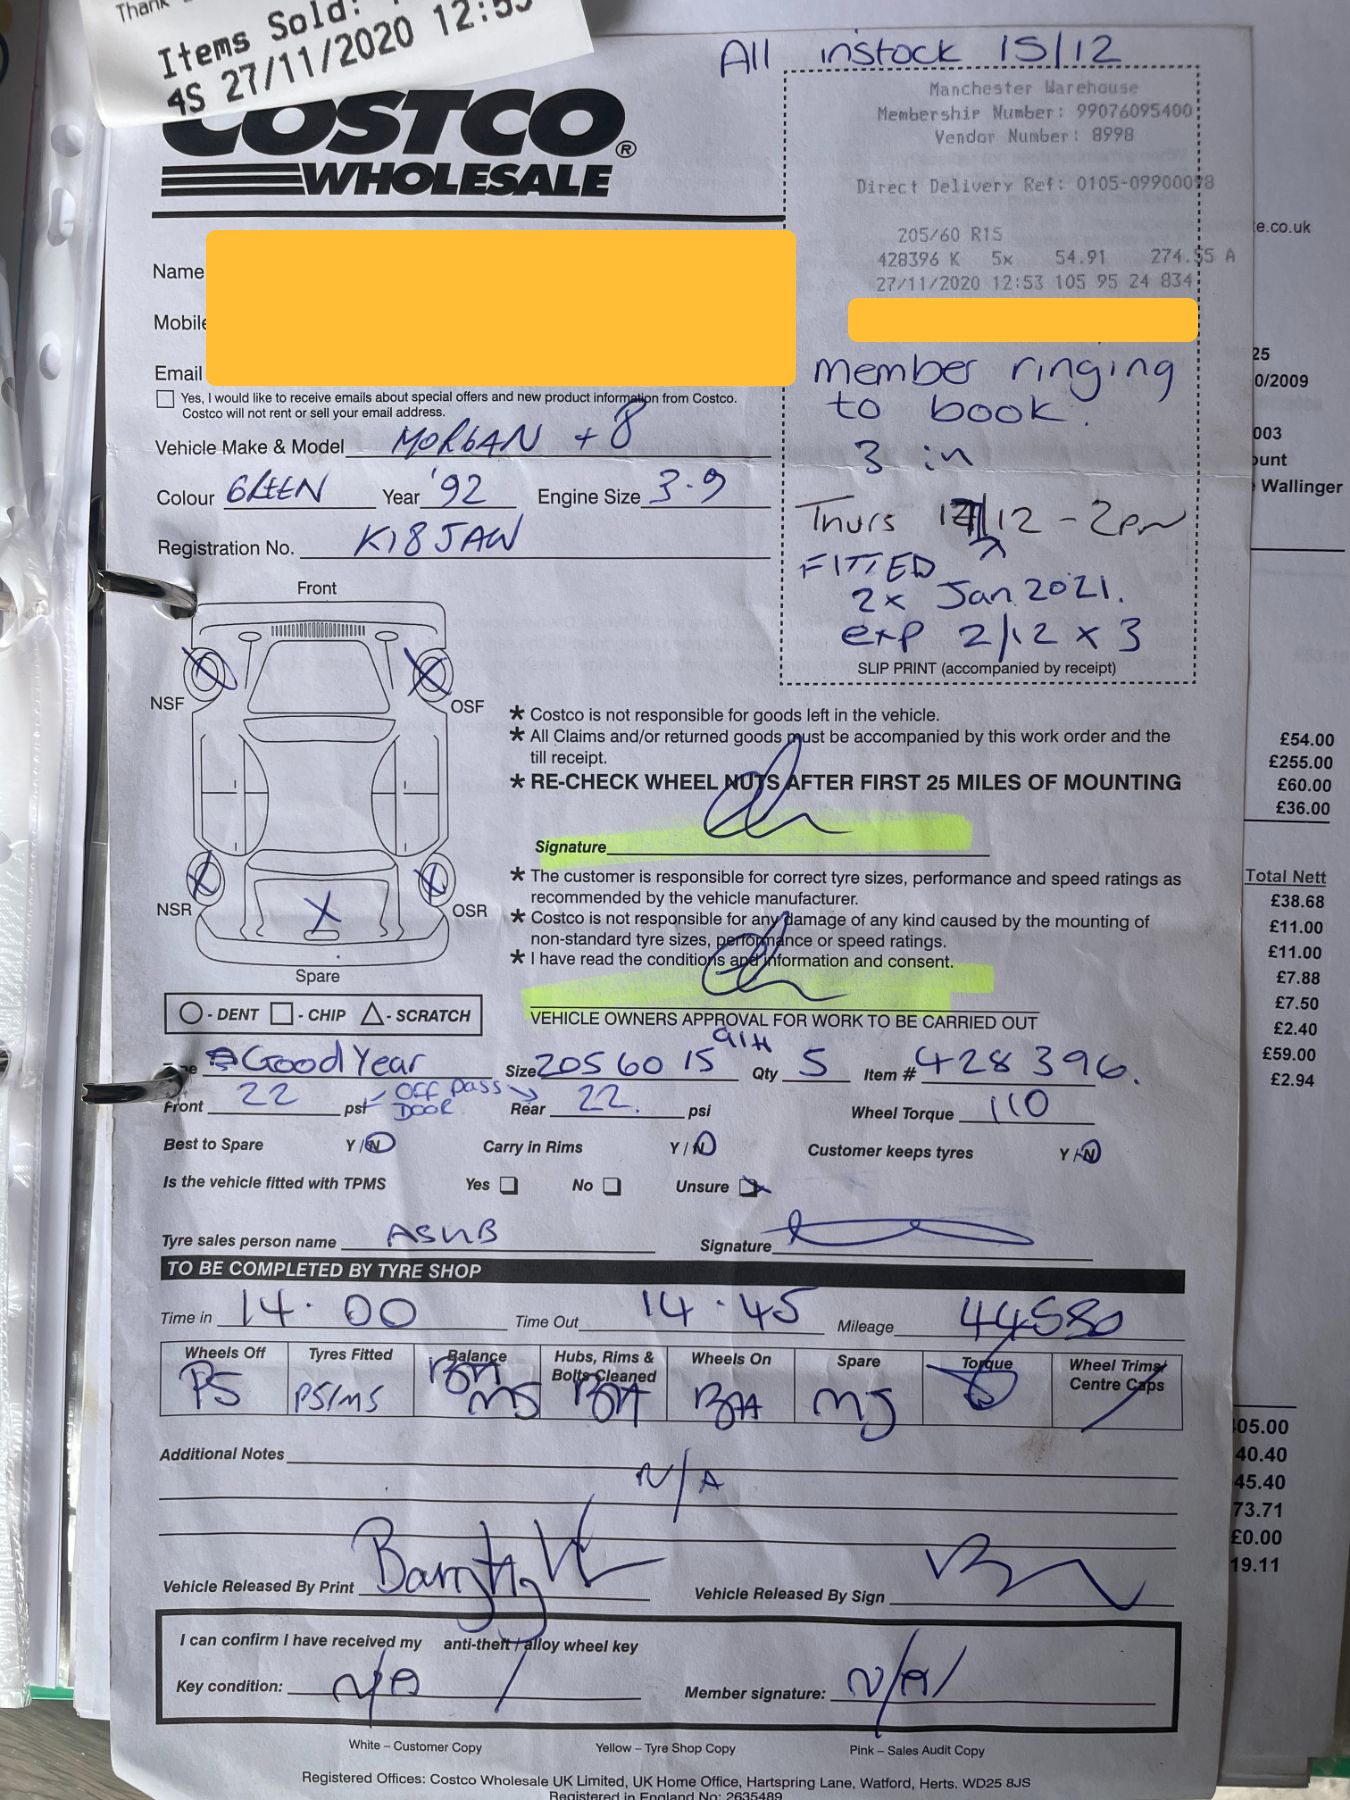 Thank
Items Sold:
4S 27/11/2020 12:53
All instock 15/12
COSTCO ®
WHOLESALE
Manchester Warehouse
Membership Number: 99076095400
Vendor Number: 8998
Direct Delivery Ref: 0105-09900098
205/60 R15
428396 K 5x 54.91 274.55 A
27/11/2020 12:53 105 95 24 834
member ringing
to book.
3 in
Thurs 17/12 - 2pm
FITTED
2x Jan 2021.
exp 2/12 x 3
SLIP PRINT (accompanied by receipt)
Name
Mobile
Email
Yes, I would like to receive emails about special offers and new product information from Costco.
Costco will not rent or sell your email address.
Vehicle Make & Model MORGAN +8
Colour GREEN Year '92 Engine Size 3.9
Registration No. K18JAW
Front
NSF OSF
NSR OSR
Spare
- DENT - CHIP - SCRATCH
* Costco is not responsible for goods left in the vehicle.
* All Claims and/or returned goods must be accompanied by this work order and the
till receipt.
* RE-CHECK WHEEL NUTS AFTER FIRST 25 MILES OF MOUNTING
Signature
* The customer is responsible for correct tyre sizes, performance and speed ratings as
recommended by the vehicle manufacturer.
* Costco is not responsible for any damage of any kind caused by the mounting of
non-standard tyre sizes, performance or speed ratings.
* I have read the conditions and information and consent.
VEHICLE OWNERS APPROVAL FOR WORK TO BE CARRIED OUT
GoodYear Size 205 60 15 91H Qty 5 Item # 428396.
Front 22 psi OFF PASS DOOR Rear 22. psi Wheel Torque 110
Best to Spare Y / N Carry in Rims Y / N Customer keeps tyres Y / N
Is the vehicle fitted with TPMS Yes No Unsure
Tyre sales person name Signature
TO BE COMPLETED BY TYRE SHOP
Time in 14.00 Time Out 14.45 Mileage 44580
Wheels Off Tyres Fitted Balance Hubs, Rims & Bolts Cleaned Wheels On Spare Torque Wheel Trims/ Centre Caps
PS PS/MS MS MS
Additional Notes
N/A
Vehicle Released By Print Vehicle Released By Sign
I can confirm I have received my anti-theft / alloy wheel key
Key condition: N/A Member signature: N/A
White – Customer Copy Yellow – Tyre Shop Copy Pink – Sales Audit Copy
Registered Offices: Costco Wholesale UK Limited, UK Home Office, Hartspring Lane, Watford, Herts. WD25 8JS
Registered in England No: 2635489
e.co.uk
25
0/2009
003
ount
Wallinger
£54.00
£255.00
£60.00
£36.00
Total Nett
£38.68
£11.00
£11.00
£7.88
£7.50
£2.40
£59.00
£2.94
05.00
40.40
45.40
73.71
£0.00
19.11